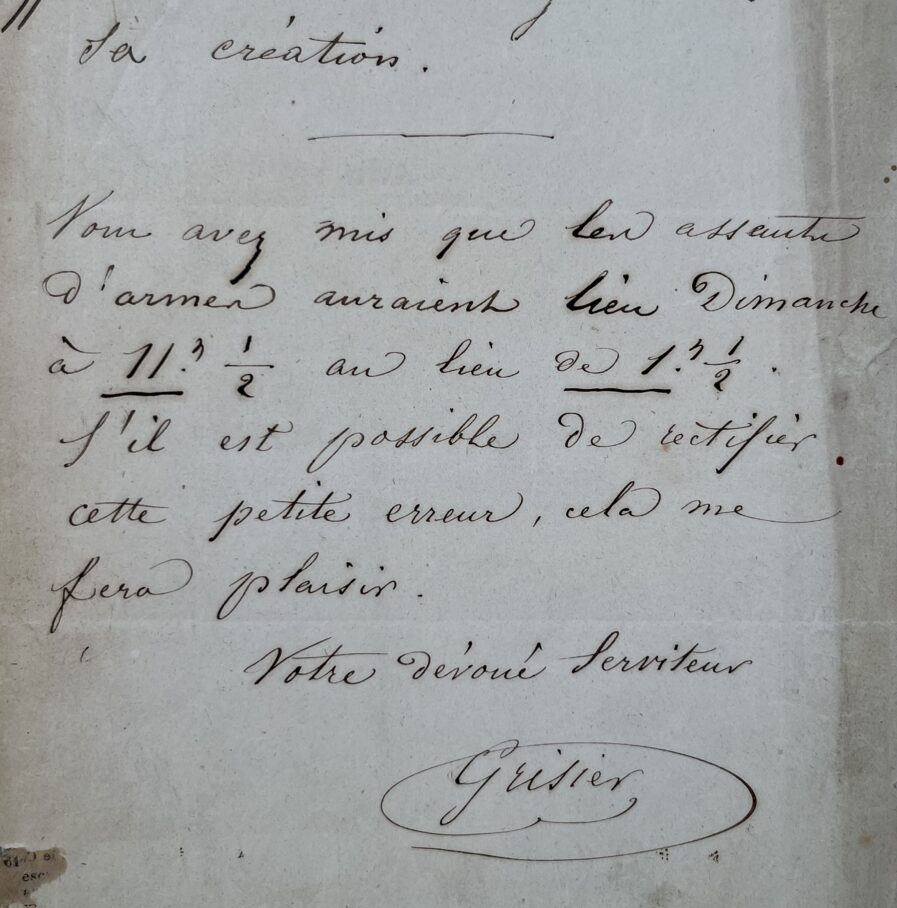 sa création.
Vous avez mis que les assauts
d'armes auraient lieu Dimanche
à 11.h 1/2 au lieu de 1.h 1/2.
S'il est possible de rectifier
cette petite erreur, cela me
fera plaisir.
Votre dévoué Serviteur
Grisier